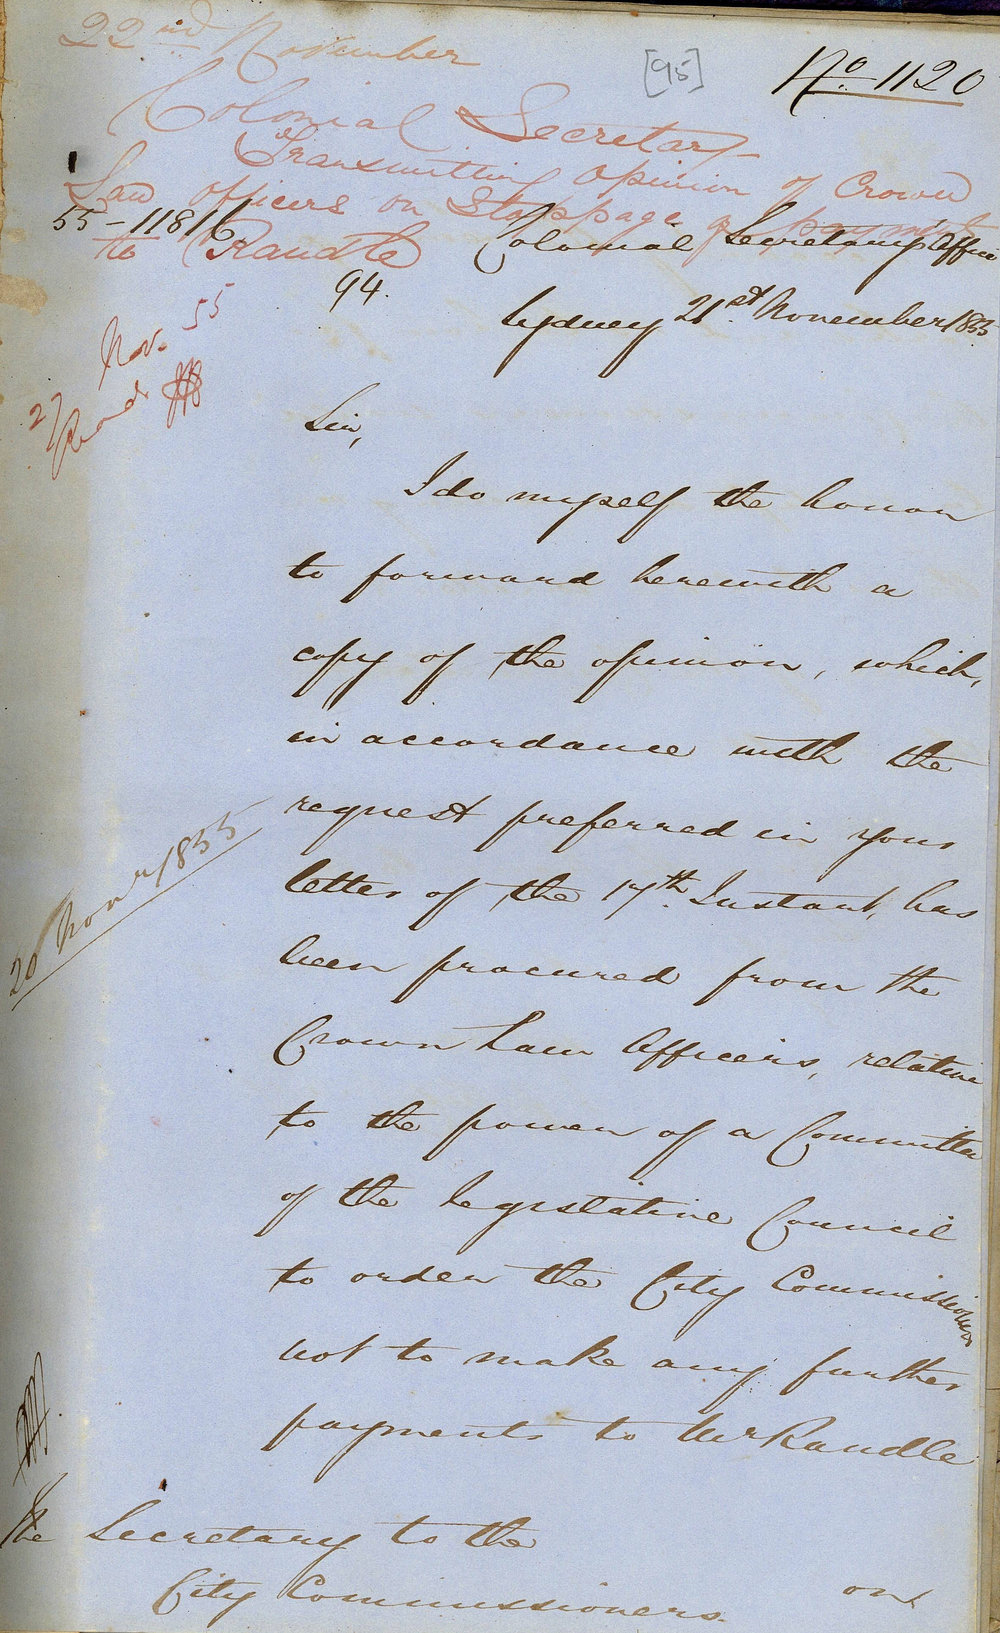 22nd November
[95]
No. 1120
Colonial Secretary
Transmitting opinion of Crown
Law officers on Stoppage of payment
to Randle
55-11816
94.
Colonial Secretary's Office
Sydney 21st November 1855
27 Nov. 55
Read
Sir,
I do myself the honor
to forward herewith a
copy of the opinion, which,
in accordance with the
request preferred in your
letter of the 17th. Instant, has
been procured from the
Crown Law Officers, relative
to the power of a Committee
of the Legislative Council
to order the City Commissioners
not to make any further
payments to Mr Randle
20 Novr 1855
The Secretary to the
City Commissioners.
on